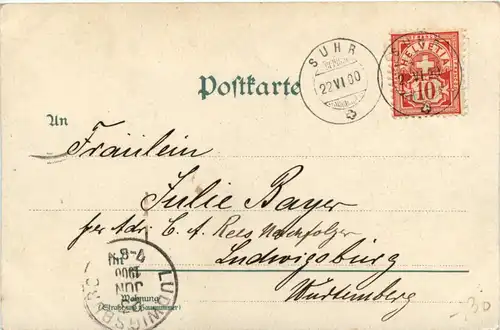 Postkarte
SUHR
22 VI 00
HELVETIA
10
An
Fräulein
Julie Bayer
per Adr. C. A. Rees Nachfolger
Ludwigsburg
Württemberg
LUDWIGSBURG
JUN
1900
7-8 N
Wohnung
(Straße und Hausnummer)